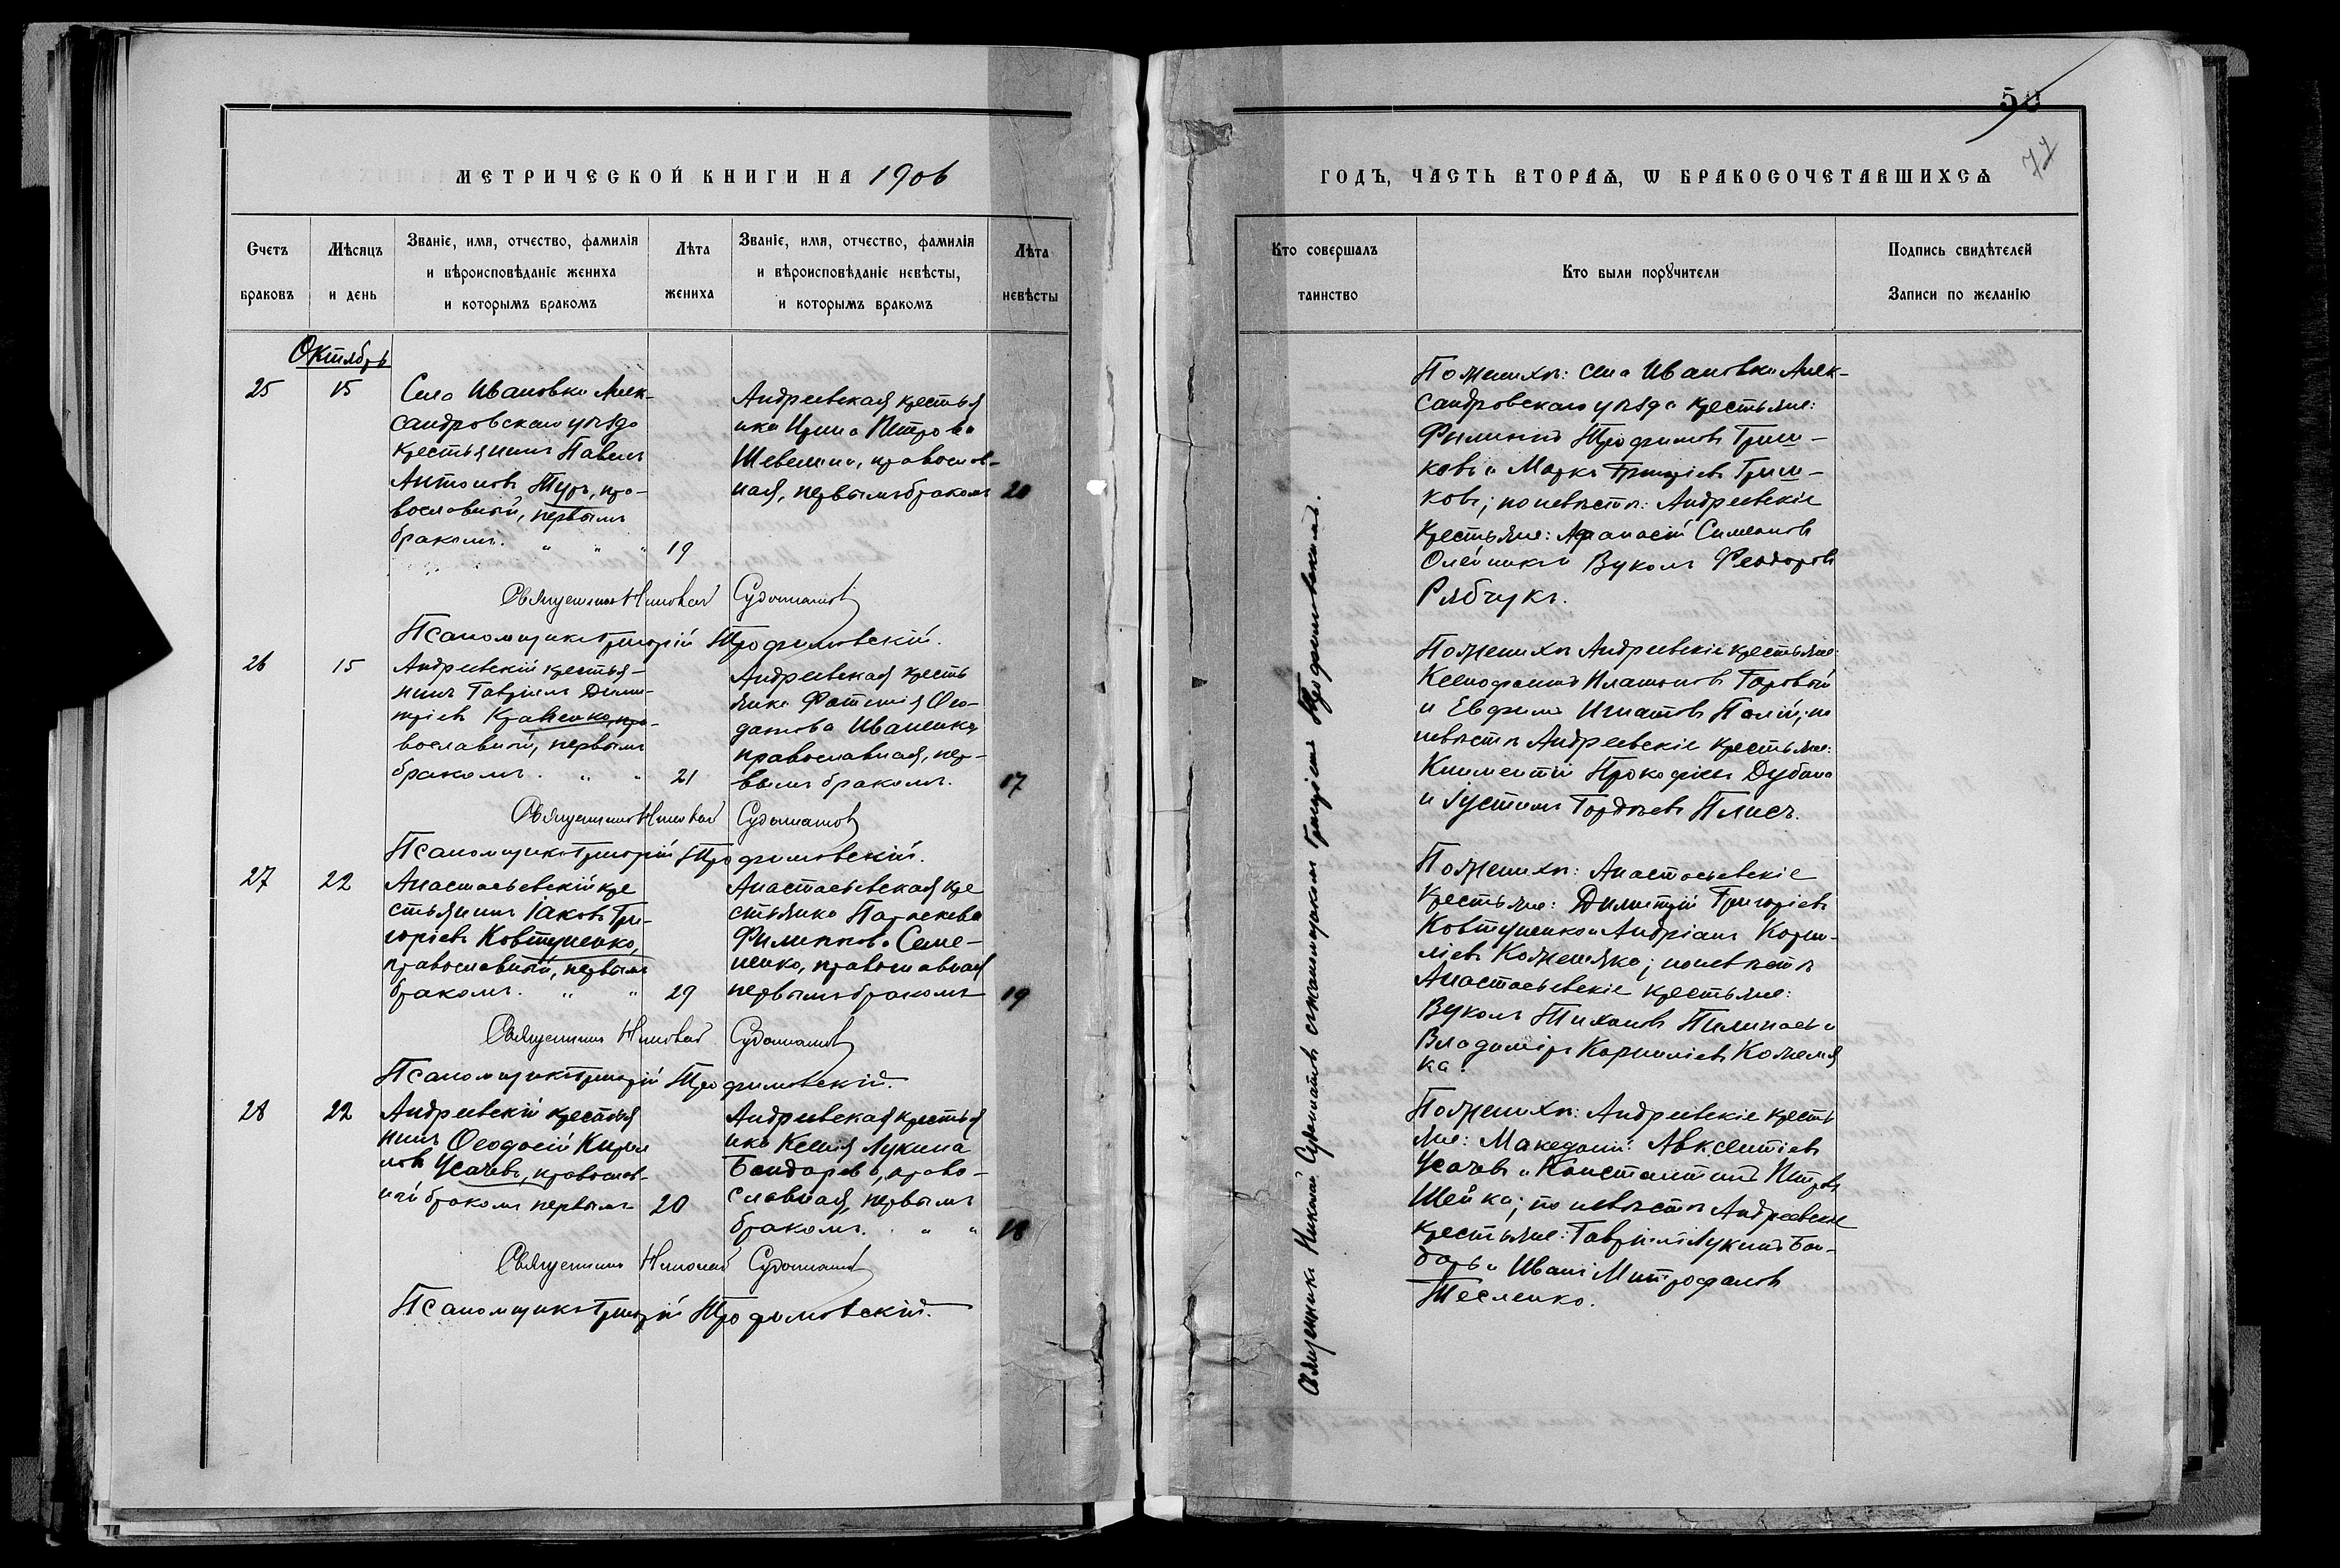 МЕТРИЧЕСКОЙ КНИГИ НА 1906
Счетъ браковъ
Мѣсяцъ и день
Званіе, имя, отчество, фамилія и вѣроисповѣданіе жениха и которымъ бракомъ
Лѣта жениха
Званіе, имя, отчество, фамилія и вѣроисповѣданіе невѣсты, и которымъ бракомъ
Лѣта невѣсты
Октябрь
25
15
Села Ивановки Алек-
сандровскаго уѣзда
крестьянинъ Павелъ
Антоновъ Туръ, пра-
вославный, первымъ
бракомъ. " " "
19
Андреевская крестья
нка Ирина Петрова
православ-
ная, первымъ бракомъ
20
Священникъ Николай Судомановъ
Псаломщикъ Григорій Трофимовскій.
26
15
Андреевскій крестья-
нинъ Гавріилъ Дими-
тріевъ Кравченко, пра-
вославный, первымъ
бракомъ. " "
21
Андреевская кресть
янка Фотинія Ѳео-
датова Иваненко
православная, пер-
вымъ бракомъ.
17
Священникъ Николай Судомановъ
Псаломщикъ Григорій Трофимовскій.
27
22
Анастасьевскій кре
стьянинъ Іаковъ Гри-
горіевъ Ковтуненко,
православный, первымъ
бракомъ. " "
29
Анастасьевская кре
стьянка Параскева
Филиппова Семе-
ненко, православная
первымъ бракомъ
19
Священникъ Николай Судомановъ
Псаломщикъ Григорій Трофимовскій.
28
22
Андреевскій крестья
нинъ Ѳеодосій Кирил
ловъ Усачевъ, православ-
ный бракомъ первымъ
20
Андреевская крестья
нка Ксенія Лукина
Бондарева, право-
славная, первымъ
бракомъ. " "
18
Священникъ Николай Судомановъ
Псаломщикъ Григорій Трофимовскій.
50
77
ГОДЪ, ЧАСТЬ ВТОРАѦ, Ѡ БРАКОСОЧЕТАВШИХСѦ
Кто совершалъ таинство
Кто были порꙋчители
Подпись свидѣтелей Записи по желанію
Священникъ Николай Судомановъ съ псаломщикомъ Григоріемъ Трофимовскимъ.
По женихѣ: села Ивановки Алек-
сандровскаго уѣзда крестьяне:
Филиппъ Трофимовъ Гриш-
ковъ и Марко Григоріевъ Гриш-
ковъ; по невѣстѣ: Андреевскіе
крестьяне: Афанасій Симеоновъ
Олейникъ и Вуколъ Феодоровъ
Рябчукъ.
По женихѣ Андреевскіе крестьяне:
Ксенофонтъ Платоновъ Горовый
и Евфимъ Игнатовъ Палій; по
невѣстѣ Андреевскіе крестьяне:
Климентій Прокофіевъ Дубина
и Іустинъ Гордѣевъ Плисъ.
По женихѣ: Анастасьевскіе
крестьяне: Димитрій Григоріевъ
Ковтуненко и Андріанъ Корни-
ліевъ Кожемяка; по невѣстѣ
Анастасьевскіе крестьяне:
Вуколъ Тихоновъ Пилипась и
Владиміръ Корниліевъ Кожемя
ка.
По женихѣ: Андреевскіе кресть
яне: Македоній Авксентіевъ
Усачевъ и Константинъ Петровъ
Шейка; по невѣстѣ Андреевскіе
крестьяне: Гавріилъ Лукинъ Бон-
дарь и Иванъ Митрофановъ
Тесленко.